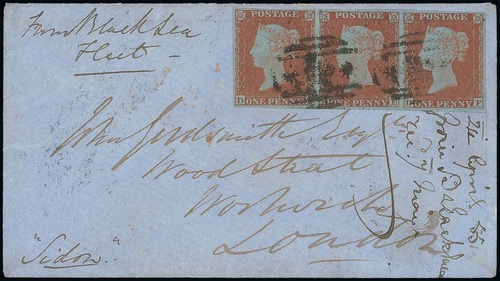 From Black Sea
Fleet
POSTAGE POSTAGE POSTAGE
ONE PENNY ONE PENNY ONE PENNY
John Goldsmith Esq
Wood Street
Woolwich
London
"Sidon".
24 April 55
from Black Sea
Rec
May